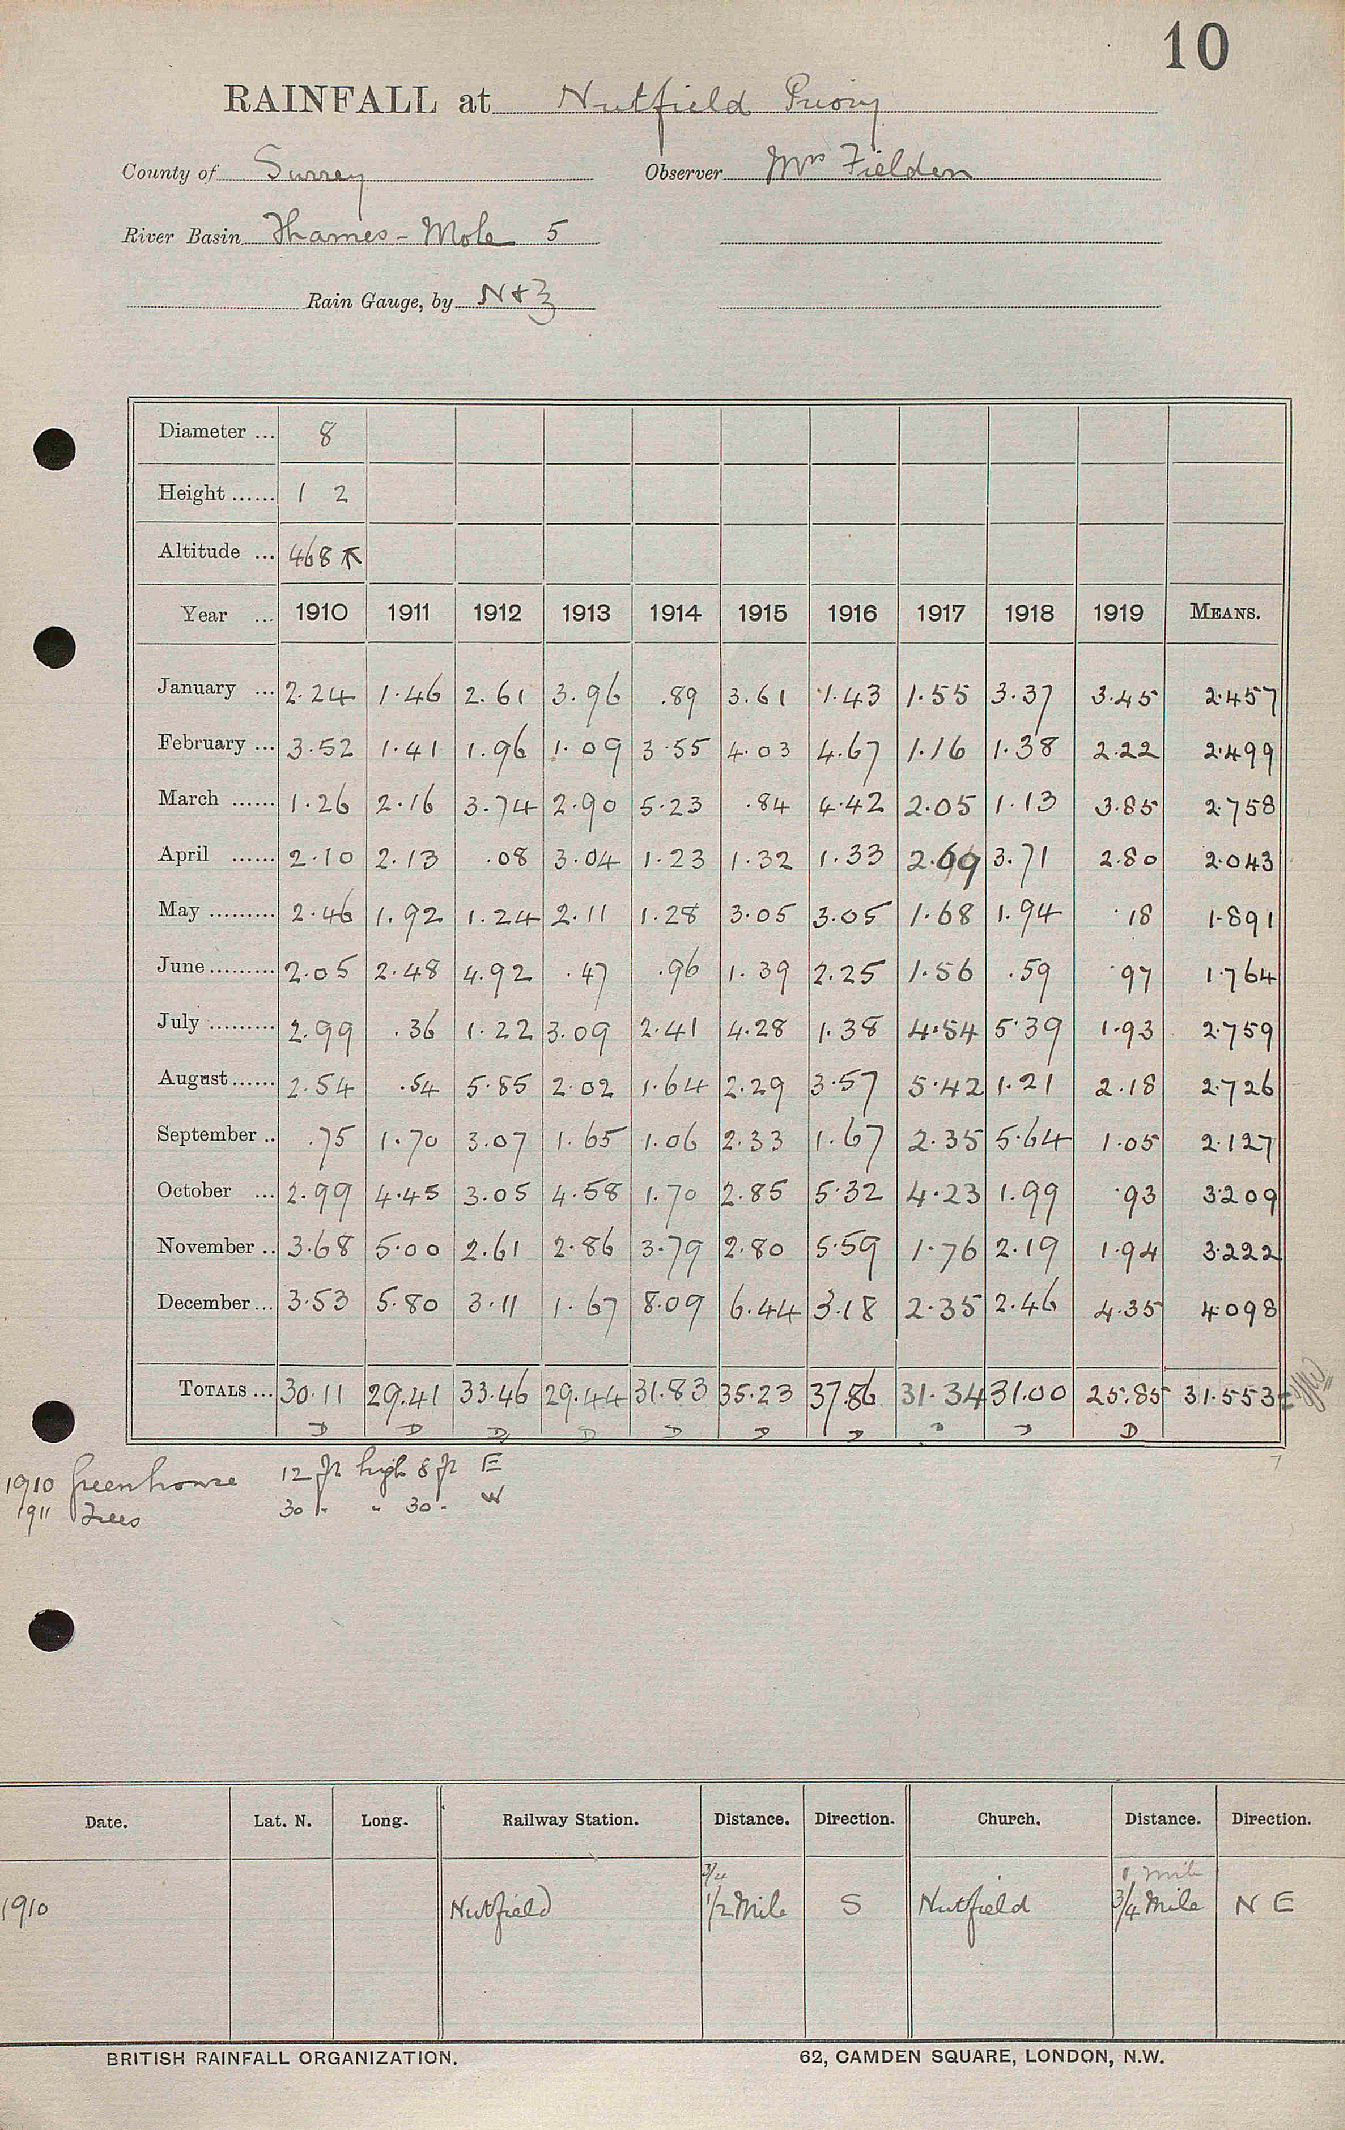 10
RAINFALL at Nutfield Priory
County of Surrey Observer Mrs Fielden
River Basin Thames - Mole 5
Rain Gauge, by N & Z
Diameter ... 8
Height ...... 1 2
Altitude ... 468
Year ... 1910 1911 1912 1913 1914 1915 1916 1917 1918 1919 MEANS.
January ... 2.24 1.46 2.61 3.96 .89 3.61 1.43 1.55 3.37 3.45 2.457
February ... 3.52 1.41 1.96 1.09 3.55 4.03 4.67 1.16 1.38 2.22 2.499
March ...... 1.26 2.16 3.74 2.90 5.23 .84 4.42 2.05 1.13 3.85 2.758
April ...... 2.10 2.13 .08 3.04 1.23 1.32 1.33 2.69 3.71 2.80 2.043
May ......... 2.46 1.92 1.24 2.11 1.28 3.05 3.05 1.68 1.94 .18 1.891
June ......... 2.05 2.48 4.92 .47 .96 1.39 2.25 1.56 .59 .97 1.764
July ......... 2.99 .36 1.22 3.09 2.41 4.28 1.38 4.54 5.39 1.93 2.759
August ...... 2.54 .54 5.85 2.02 1.64 2.29 3.57 5.42 1.21 2.18 2.726
September .. .75 1.70 3.07 1.65 1.06 2.33 1.67 2.35 5.64 1.05 2.127
October ... 2.99 4.45 3.05 4.58 1.70 2.85 5.32 4.23 1.99 .93 3.209
November .. 3.68 5.00 2.61 2.86 3.79 2.80 5.59 1.76 2.19 1.94 3.222
December ... 3.53 5.80 3.11 1.67 8.09 6.44 3.18 2.35 2.46 4.35 4.098
TOTALS ... 30.11 29.41 33.46 29.44 31.83 35.23 37.86 31.34 31.00 25.85 31.553
D D D D D D D D D D
1910 Greenhouse 12 ft high 8 ft E
1911 Trees 30 " " 30 " W
Date. Lat. N. Long. Railway Station. Distance. Direction. Church. Distance. Direction.
3/4 1 mile
1910 Nutfield 1/2 Mile S Nutfield 3/4 Mile N E
BRITISH RAINFALL ORGANIZATION. 62, CAMDEN SQUARE, LONDON, N.W.